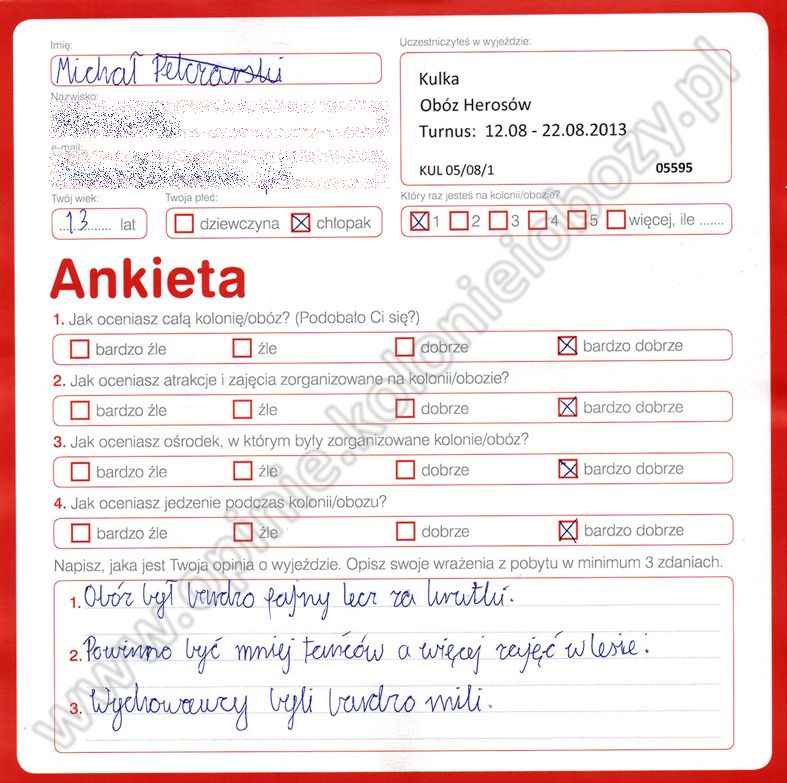 Imię:
Michał
Nazwisko:
e-mail:
Twój wiek:
13 lat
Twoja płeć:
dziewczyna chłopak
Uczestniczyłeś w wyjeździe:
Kulka
Obóz Herosów
Turnus: 12.08 - 22.08.2013
KUL 05/08/1 05595
Który raz jesteś na kolonii/obozie?
1 2 3 4 5 więcej, ile .......
Ankieta
1. Jak oceniasz całą kolonię/obóz? (Podobało Ci się?)
bardzo źle źle dobrze bardzo dobrze
2. Jak oceniasz atrakcje i zajęcia zorganizowane na kolonii/obozie?
bardzo źle źle dobrze bardzo dobrze
3. Jak oceniasz ośrodek, w którym były zorganizowane kolonie/obóz?
bardzo źle źle dobrze bardzo dobrze
4. Jak oceniasz jedzenie podczas kolonii/obozu?
bardzo źle źle dobrze bardzo dobrze
Napisz, jaka jest Twoja opinia o wyjeździe. Opisz swoje wrażenia z pobytu w minimum 3 zdaniach.
1. Obóz był bardzo fajny lecz za krutki.
2. Powinno być mniej tańców a więcej zajęć w lesie.
3. Wychowawcy byli bardzo mili.
www.opinie.kolonieiobozy.pl